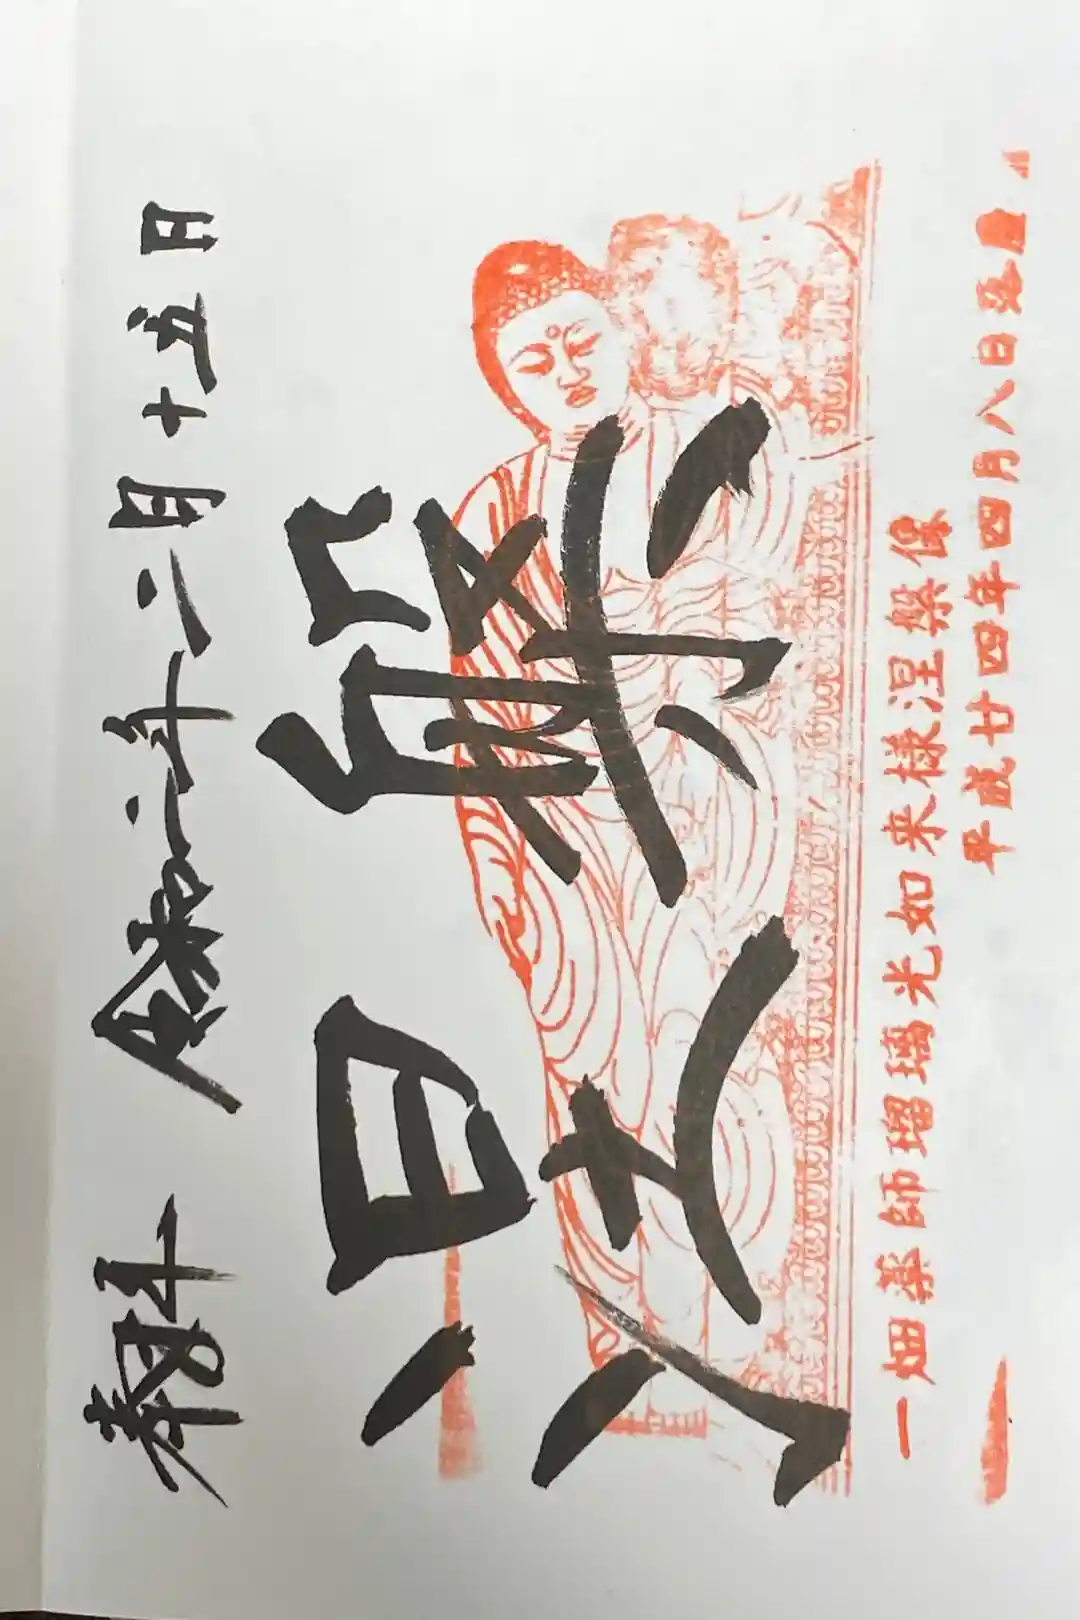 奉拝 令和二年二月十五日
涅槃
一畑薬師瑠璃光如来様涅槃像
平成廿四年四月八日落慶